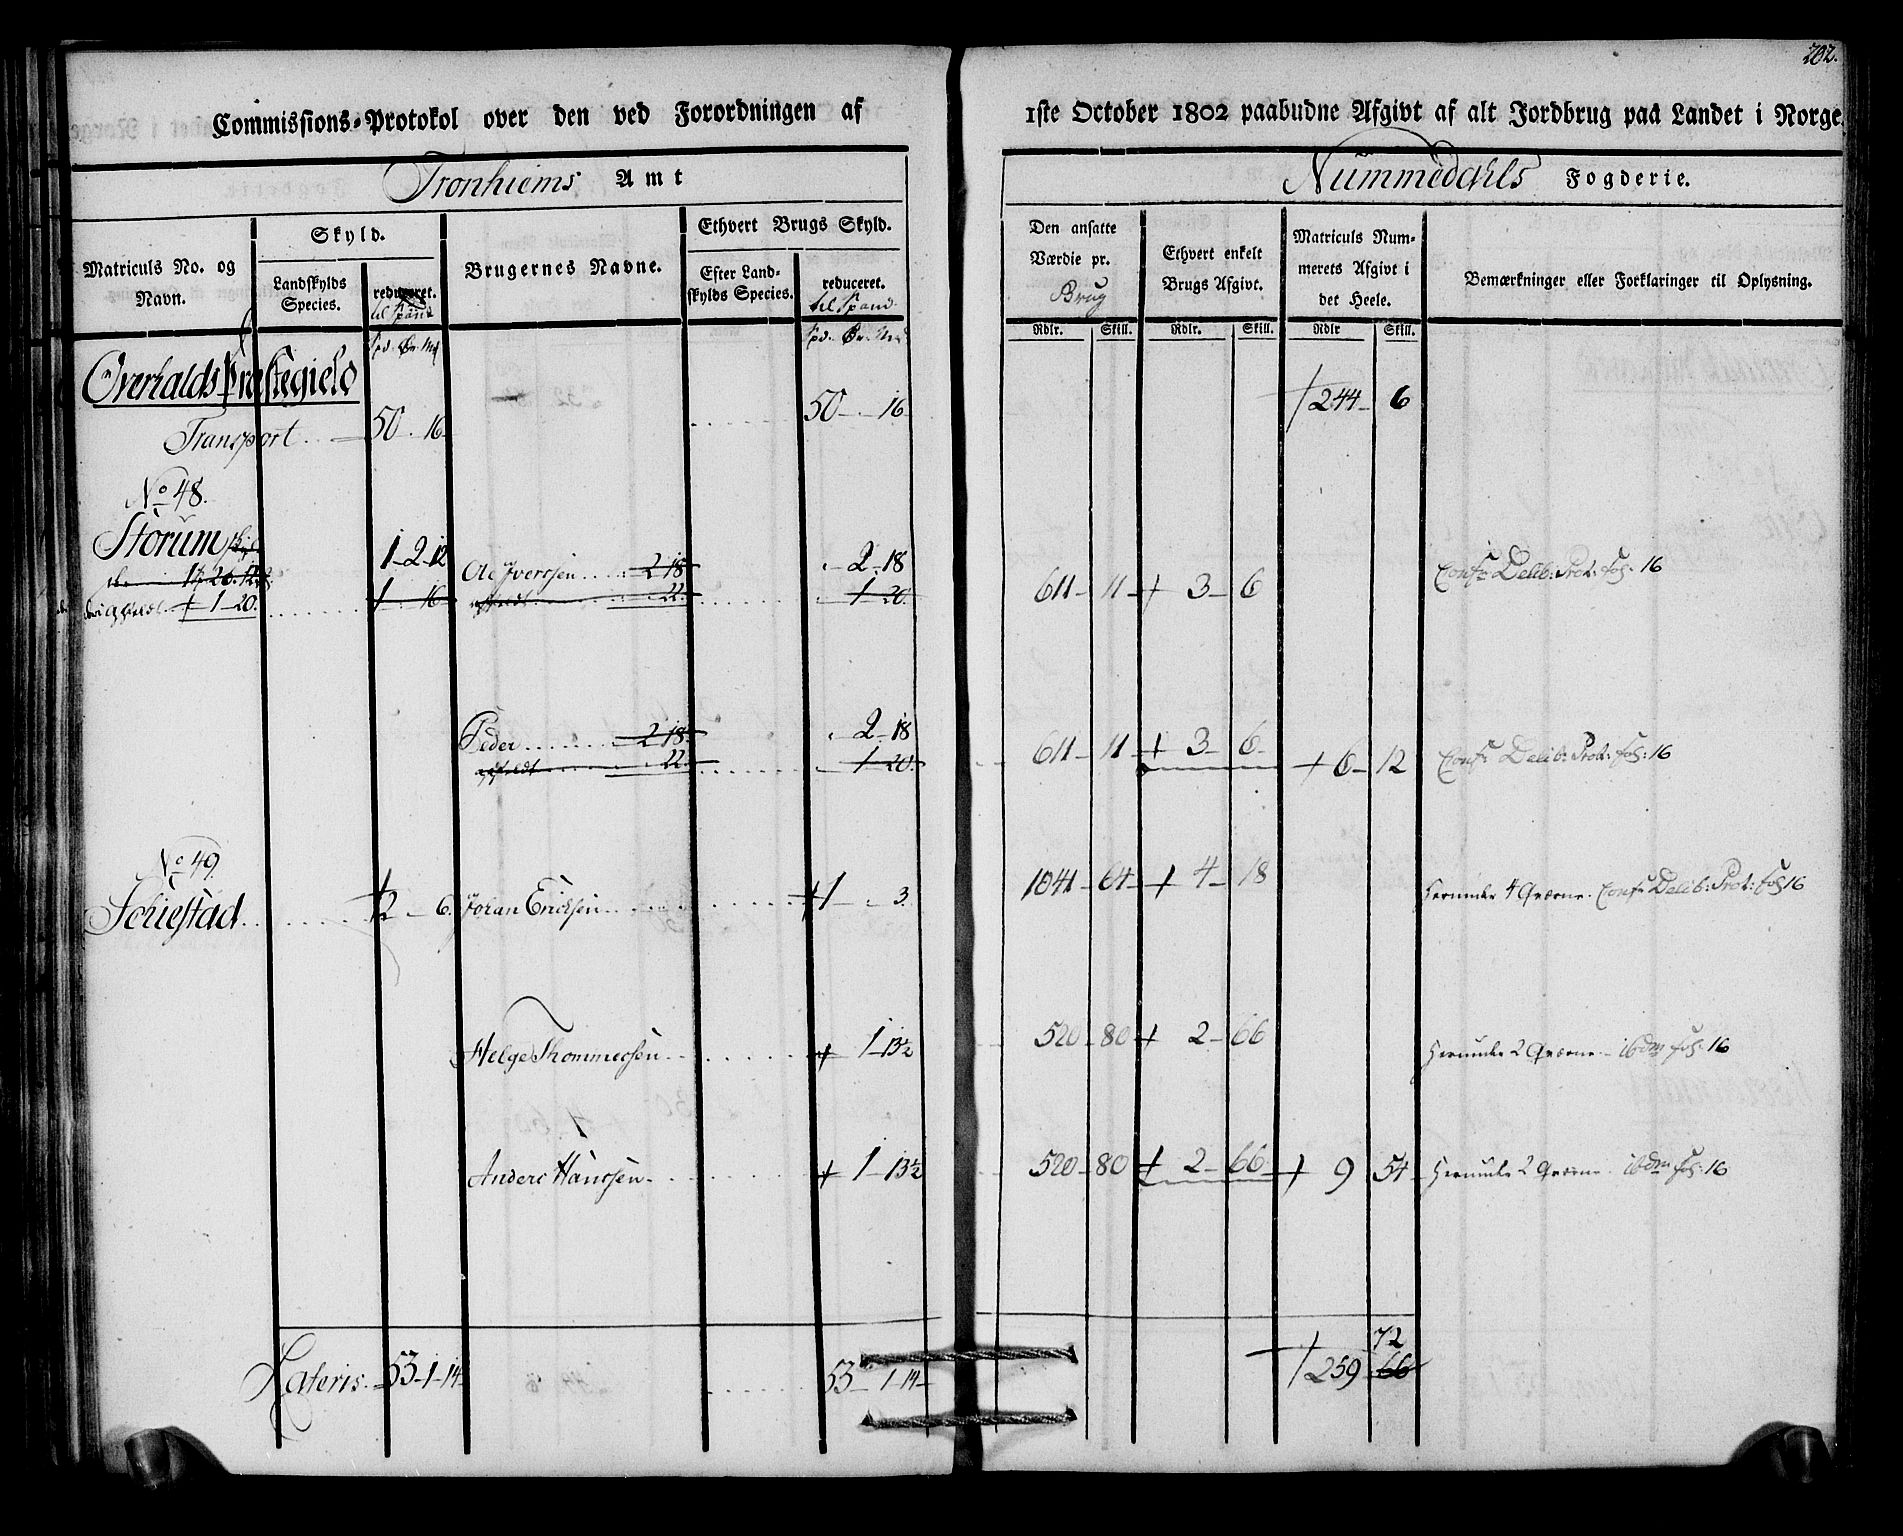 202.
Commissions-Protokol over den ved Forordningen af 1ste October 1802 paabudne Afgivt af alt Jordbrug paa Landet i Norge.
Tronhiems Amt
Nummedahls Fogderie.
Matriculs No. og Navn.
Skyld.
Landskylds Species.
reduceret.
til Spand
Brugernes Navne.
Ethvert Brugs Skyld.
Efter Landskylds Species.
reduceret.
til Spand
Den ansatte Værdie pr. Brug
Ethvert enkelt Brugs Afgivt.
Matriculs Nummerets Afgivt i det Heele.
Bemærkninger eller Forklaringer til Oplysning.
Rdlr. Skill. Rdlr. Skill. Rdlr Skill.
Spd. Ør. Ml
Overhalds Præstegield
Transport 50 . 16 50 - 16 244 - 6
No 48.
Storum
1 - 2 - 12 Ole Iverssen 2 18 2 - 18 611 - 11 3 - 6 Confr Delib: Prot: fol: 16
1 - 20 1 16 22 1 20
Peder 2 18 2 - 18 611 - 11 3 - 6 6 - 12 Confr Delib: Prot: fol: 16
22 1 20
No 49.
Schiestad 2 - 6 Johan Erichsen 1 - 3 1041 - 64 4 - 18 Herunder 4 Qværne. Confr Delib: Prot: fol 16
Helge Thommesen 1 - 13½ 520 - 80 2 - 66 Herunder 2 Qværne - ibdm fol: 16
Anders Hanssen 1 - 13½ 520 - 80 2 - 66 9 54 Herunder 2 Qværne - ibdm fol: 16
72
Lateris 53 - 1 - 14 53 - 1 - 14 259 66